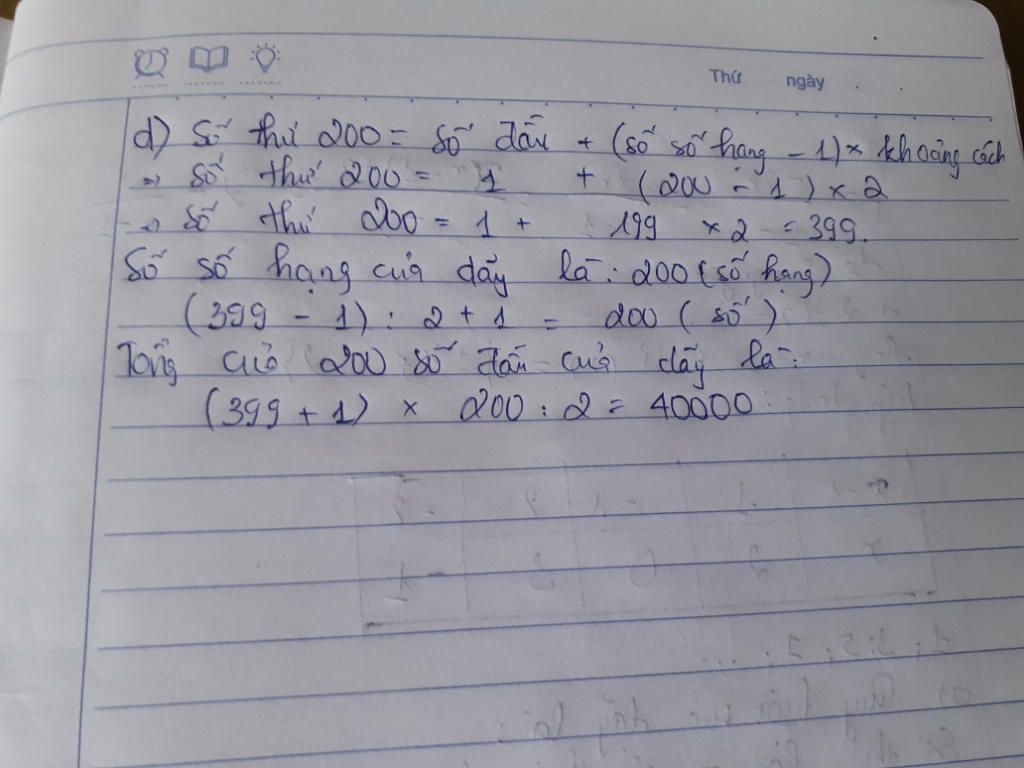 Thứ ngày
d) Số thứ 200 = số đầu + (số số hạng - 1) × khoảng cách
=> số thứ 200 = 1 + (200 - 1) × 2
=> số thứ 200 = 1 + 199 × 2 = 399.
Số số hạng của dãy là : 200 (số hạng)
(399 - 1) : 2 + 1 = 200 ( số )
Tổng của 200 số đầu của dãy là:
(399 + 1) × 200 : 2 = 40000